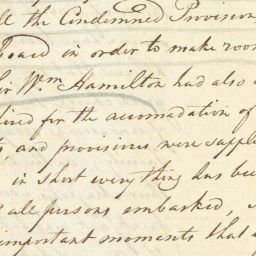 the Condemned Provision
board in order to make room
Sir Wm Hamilton had also
for the accomadation of
and provisions were suppli
in short every thing has bee
all persons embarked,
important moments that